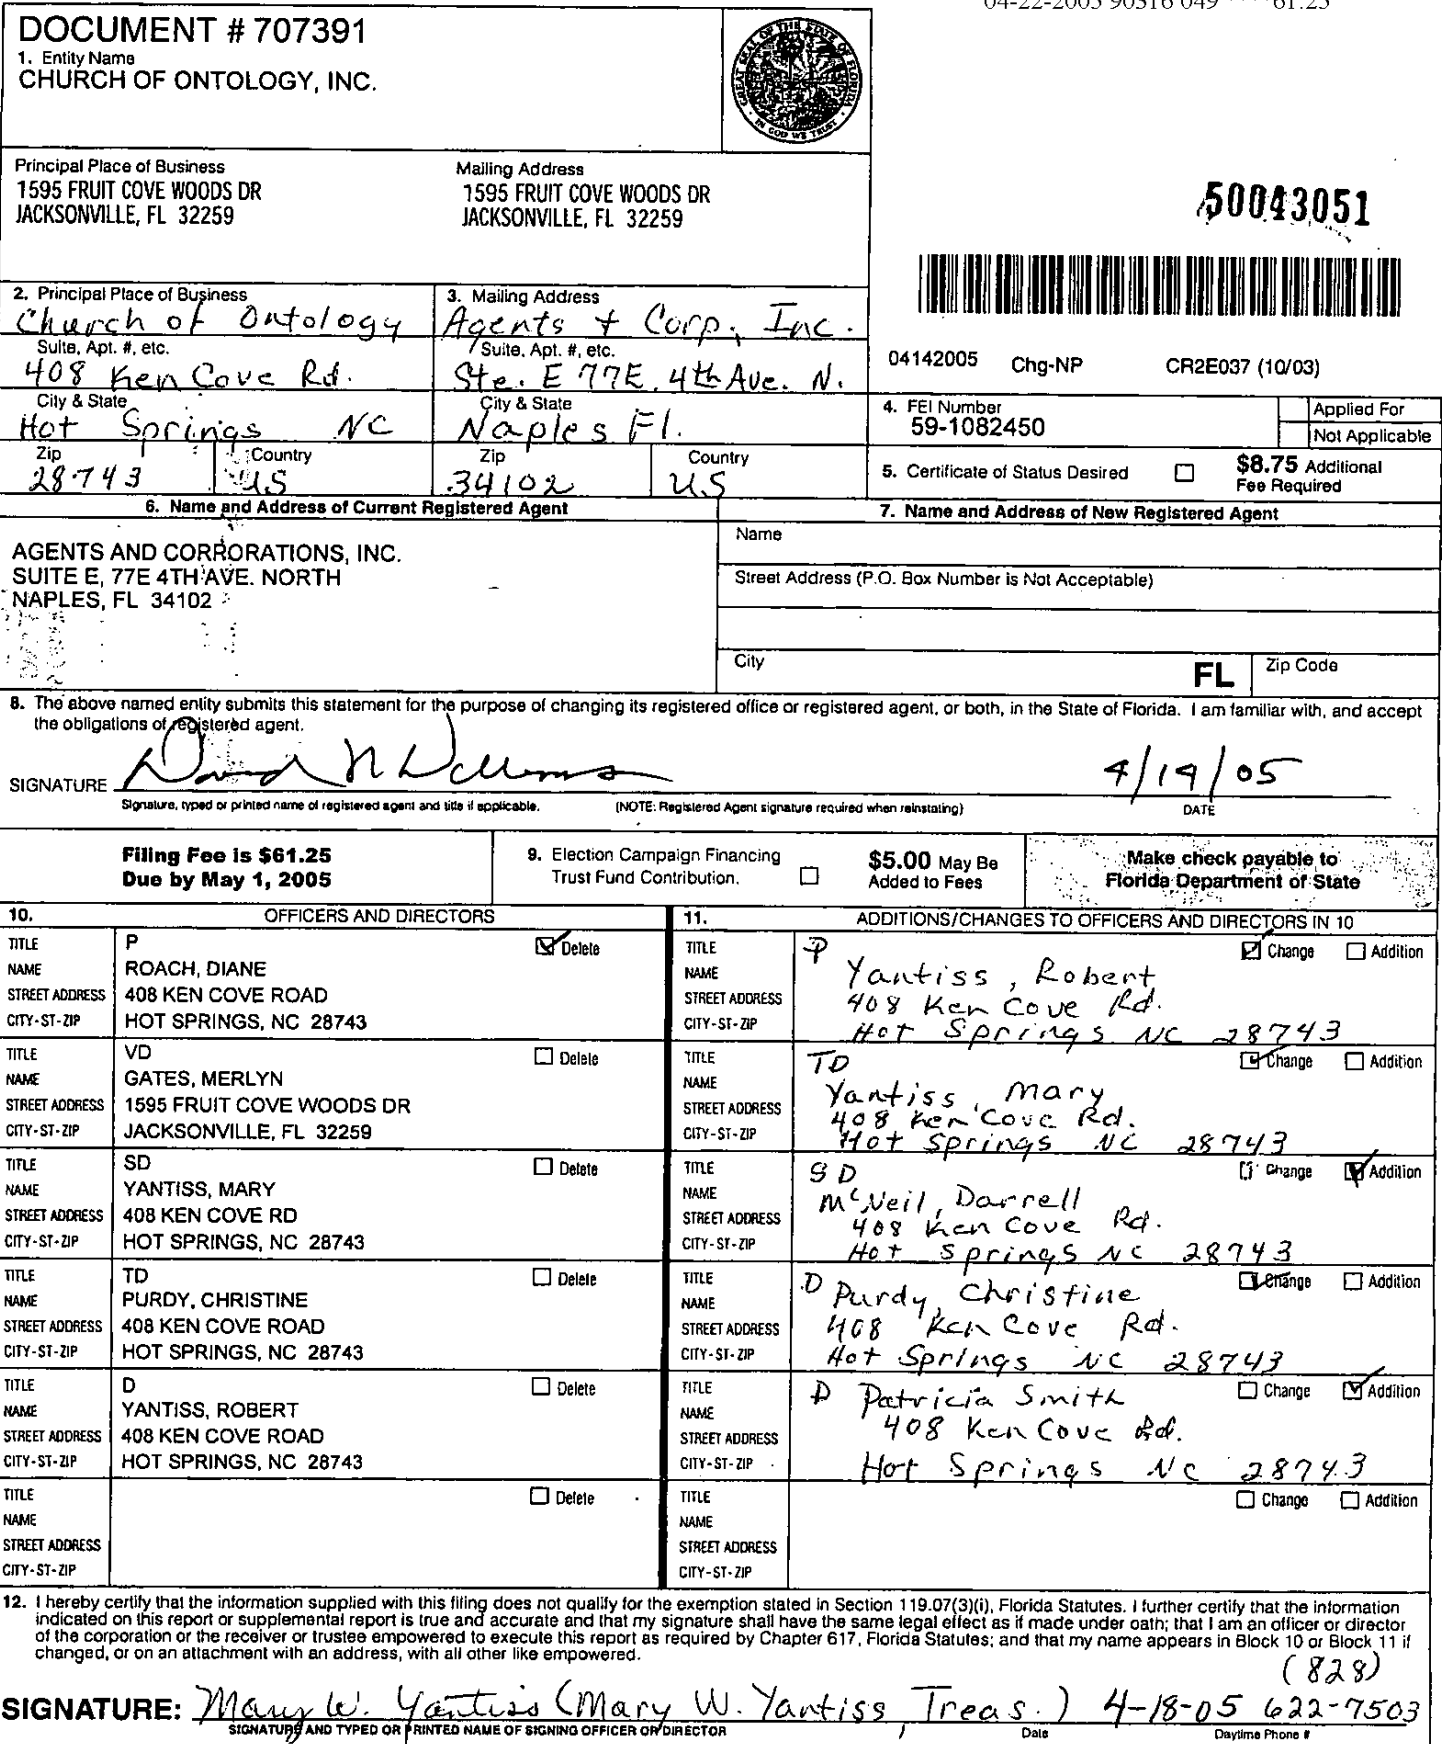 04-22-2005 90316 049 ****61.25
DOCUMENT # 707391
1. Entity Name
CHURCH OF ONTOLOGY, INC.
GREAT SEAL OF THE STATE OF FLORIDA
IN GOD WE TRUST
Principal Place of Business
1595 FRUIT COVE WOODS DR
JACKSONVILLE, FL 32259
Mailing Address
1595 FRUIT COVE WOODS DR
JACKSONVILLE, FL 32259
50043051
2. Principal Place of Business
Church of Ontology
Suite, Apt. #, etc.
408 Ken Cove Rd.
City & State
Hot Springs NC
Zip
28743
Country
US
3. Mailing Address
Agents + Corp., Inc.
Suite, Apt. #, etc.
Ste. E 77E. 4th Ave. N.
City & State
Naples Fl.
Zip
34102
Country
US
04142005 Chg-NP CR2E037 (10/03)
4. FEI Number
59-1082450
Applied For
Not Applicable
5. Certificate of Status Desired
$8.75 Additional
Fee Required
6. Name and Address of Current Registered Agent
AGENTS AND CORRORATIONS, INC.
SUITE E, 77E 4TH AVE. NORTH
NAPLES, FL 34102
7. Name and Address of New Registered Agent
Name
Street Address (P.O. Box Number is Not Acceptable)
City
FL
Zip Code
8. The above named entity submits this statement for the purpose of changing its registered office or registered agent, or both, in the State of Florida. I am familiar with, and accept
the obligations of registered agent.
SIGNATURE David N Williams 4/19/05
Signature, typed or printed name of registered agent and title if applicable. (NOTE: Registered Agent signature required when reinstating) DATE
Filing Fee is $61.25
Due by May 1, 2005
9. Election Campaign Financing
Trust Fund Contribution.
$5.00 May Be
Added to Fees
Make check payable to
Florida Department of State
10. OFFICERS AND DIRECTORS
TITLE P Delete
NAME ROACH, DIANE
STREET ADDRESS 408 KEN COVE ROAD
CITY-ST-ZIP HOT SPRINGS, NC 28743
TITLE VD Delete
NAME GATES, MERLYN
STREET ADDRESS 1595 FRUIT COVE WOODS DR
CITY-ST-ZIP JACKSONVILLE, FL 32259
TITLE SD Delete
NAME YANTISS, MARY
STREET ADDRESS 408 KEN COVE RD
CITY-ST-ZIP HOT SPRINGS, NC 28743
TITLE TD Delete
NAME PURDY, CHRISTINE
STREET ADDRESS 408 KEN COVE ROAD
CITY-ST-ZIP HOT SPRINGS, NC 28743
TITLE D Delete
NAME YANTISS, ROBERT
STREET ADDRESS 408 KEN COVE ROAD
CITY-ST-ZIP HOT SPRINGS, NC 28743
TITLE Delete
NAME
STREET ADDRESS
CITY-ST-ZIP
11. ADDITIONS/CHANGES TO OFFICERS AND DIRECTORS IN 10
TITLE P Change Addition
NAME Yantiss, Robert
STREET ADDRESS 408 Ken Cove Rd.
CITY-ST-ZIP Hot Springs NC 28743
TITLE TD Change Addition
NAME Yantiss, Mary
STREET ADDRESS 408 Ken Cove Rd.
CITY-ST-ZIP Hot Springs NC 28743
TITLE SD Change Addition
NAME McNeil, Darrell
STREET ADDRESS 408 Ken Cove Rd.
CITY-ST-ZIP Hot Springs NC 28743
TITLE D Change Addition
NAME Purdy, Christine
STREET ADDRESS 408 Ken Cove Rd.
CITY-ST-ZIP Hot Springs NC 28743
TITLE D Change Addition
NAME Patricia Smith
STREET ADDRESS 408 Ken Cove Rd.
CITY-ST-ZIP Hot Springs NC 28743
TITLE Change Addition
NAME
STREET ADDRESS
CITY-ST-ZIP
12. I hereby certify that the information supplied with this filing does not qualify for the exemption stated in Section 119.07(3)(i), Florida Statutes. I further certify that the information
indicated on this report or supplemental report is true and accurate and that my signature shall have the same legal effect as if made under oath; that I am an officer or director
of the corporation or the receiver or trustee empowered to execute this report as required by Chapter 617, Florida Statutes; and that my name appears in Block 10 or Block 11 if
changed, or on an attachment with an address, with all other like empowered.
(828)
SIGNATURE: Mary W. Yantiss (Mary W. Yantiss, Treas.) 4-18-05 622-7503
SIGNATURE AND TYPED OR PRINTED NAME OF SIGNING OFFICER OR DIRECTOR Date Daytime Phone #